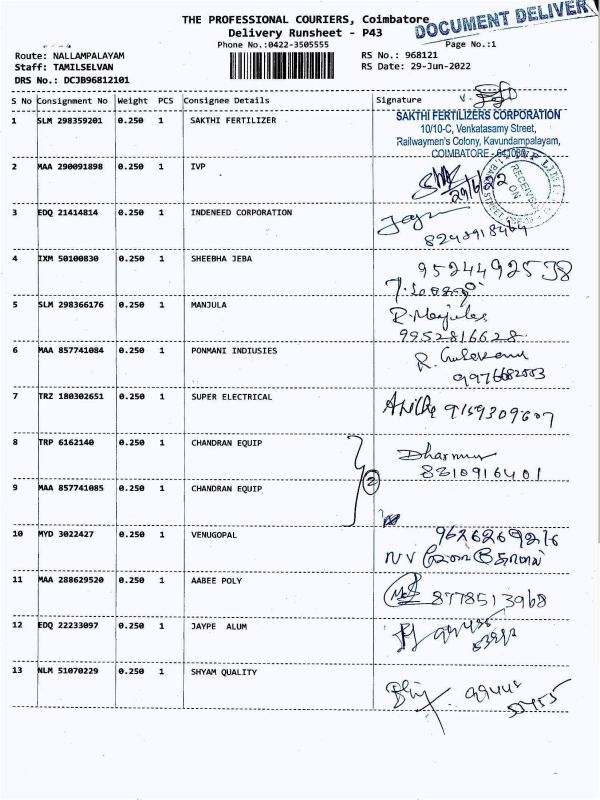 THE PROFESSIONAL COURIERS, Coimbatore
DOCUMENT DELIVER
Delivery Runsheet - P43
Phone No.:0422-3505555
Page No.:1
Route: NALLAMPALAYAM
RS No.: 968121
Staff: TAMILSELVAN
RS Date: 29-Jun-2022
DRS No.: DCJB96812101
S No Consignment No Weight PCS Consignee Details Signature
1 SLM 298359201 0.250 1 SAKTHI FERTILIZER
SAKTHI FERTILIZERS CORPORATION
10/10-C, Venkatasamy Street,
Railwaymen's Colony, Kavundampalayam,
COIMBATORE
2 MAA 290091898 0.250 1 IVP
29/6/22
RECEIVED
ON
3 EDQ 21414814 0.250 1 INDENEED CORPORATION
8248918464
4 IXM 50100830 0.250 1 SHEEBHA JEBA
9524492538
5 SLM 298366176 0.250 1 MANJULA
R. Manjula
9952816628
6 MAA 857741084 0.250 1 PONMANI INDIUSIES
7 TRZ 180302651 0.250 1 SUPER ELECTRICAL
9159309607
8 TRP 6162140 0.250 1 CHANDRAN EQUIP
8310916401
2
9 MAA 857741085 0.250 1 CHANDRAN EQUIP
10 MYD 3022427 0.250 1 VENUGOPAL
9626269216
11 MAA 288629520 0.250 1 AABEE POLY
8778513968
12 EDQ 22233097 0.250 1 JAYPE ALUM
13 NLM 51070229 0.250 1 SHYAM QUALITY